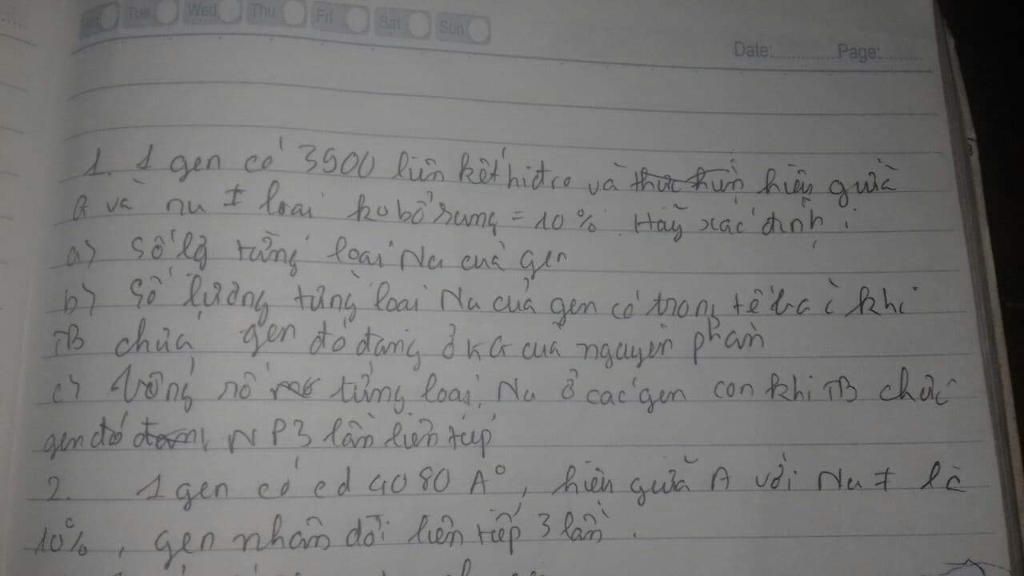 Tue Wed Thu Fri Sat Sun
Date:............ Page:.........
1. 1 gen có 3900 liên kết hiđro và hiệu giữa
G và nu ≠ loại ko bổ sung = 10%. Hãy xác định:
a) Số lg từng loại Nu của gen
b) Số lượng từng loại Nu của gen có trong tế bào khi
TB chứa gen đó đang ở kì của nguyên phân
c) Tổng số từng loại Nu ở các gen con khi TB chứa
gen đó NP 3 lần liên tiếp
2. 1 gen có cd 4080 A°, hiệu giữa A với Nu ≠ là
10%, gen nhân đôi liên tiếp 3 lần.